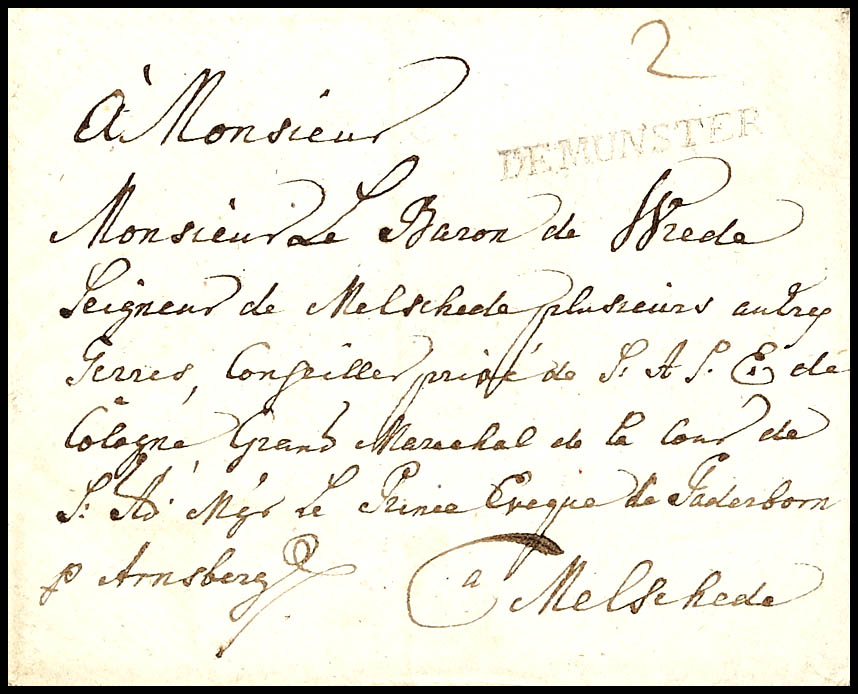 2
DE MUNSTER
à Monsieur
Monsieur Le Baron de Wrede
Seigneur de Melschede plusieurs autres
Terres, Conseiller privé de S: A S. E. de
Cologne Grand Marechal de la Cour de
S: A: Mgr Le Prince Eveque de Paderborn
p Arnsberg
a Melschede